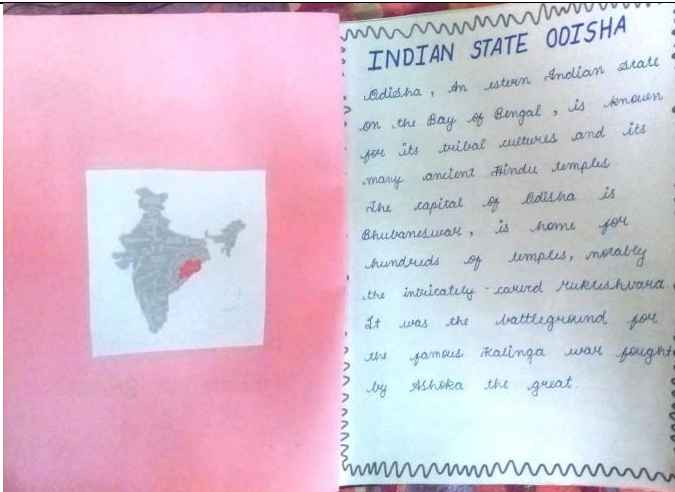 INDIAN STATE ODISHA
Odisha, An estern Indian state
on the Bay of Bengal, is known
for its tribal cultures and its
many ancient Hindu temples
The capital of Odisha is
Bhubaneswar, is home for
hundreds of temples, notably
the intricately - carved Mukteshvara.
It was the battleground for
the famous Kalinga war fought
by Ashoka the great.